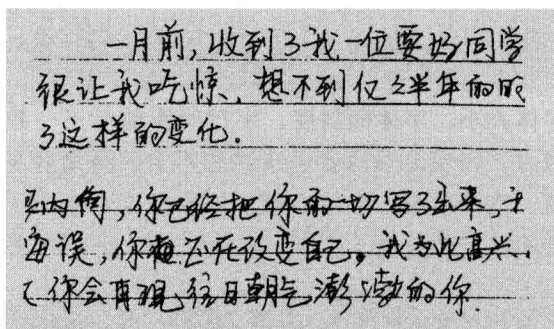 一月前,收到了我一位要好同学
很让我吃惊,想不到仅仅半年的时
了这样的变化.
内向,你已经把你的一切写了出来,
悔误,你正在改变自己。我为此高兴,
你会再现往日朝气澎渤的你.